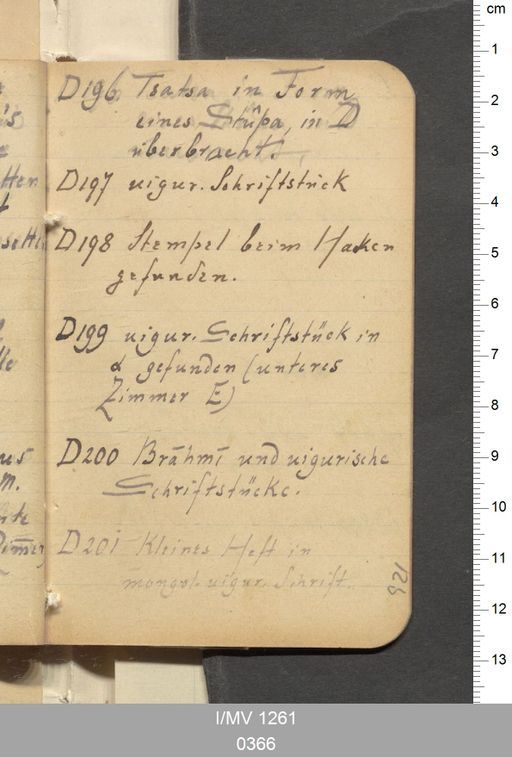 D196 Tsatsa in Form
eines Stûpa, in D
überbracht.
D197 uigur. Schriftstück
D198 Stempel beim Hacken
gefunden.
D199 uigur. Schriftstück in
α gefunden (unteres
Zimmer E)
D200 Brāhmī und uigurische
Schriftstücke.
D201 Kleines Heft in
mongol. uigur. Schrift.
126
cm
1
2
3
4
5
6
7
8
9
10
11
12
13
I/MV 1261
0366